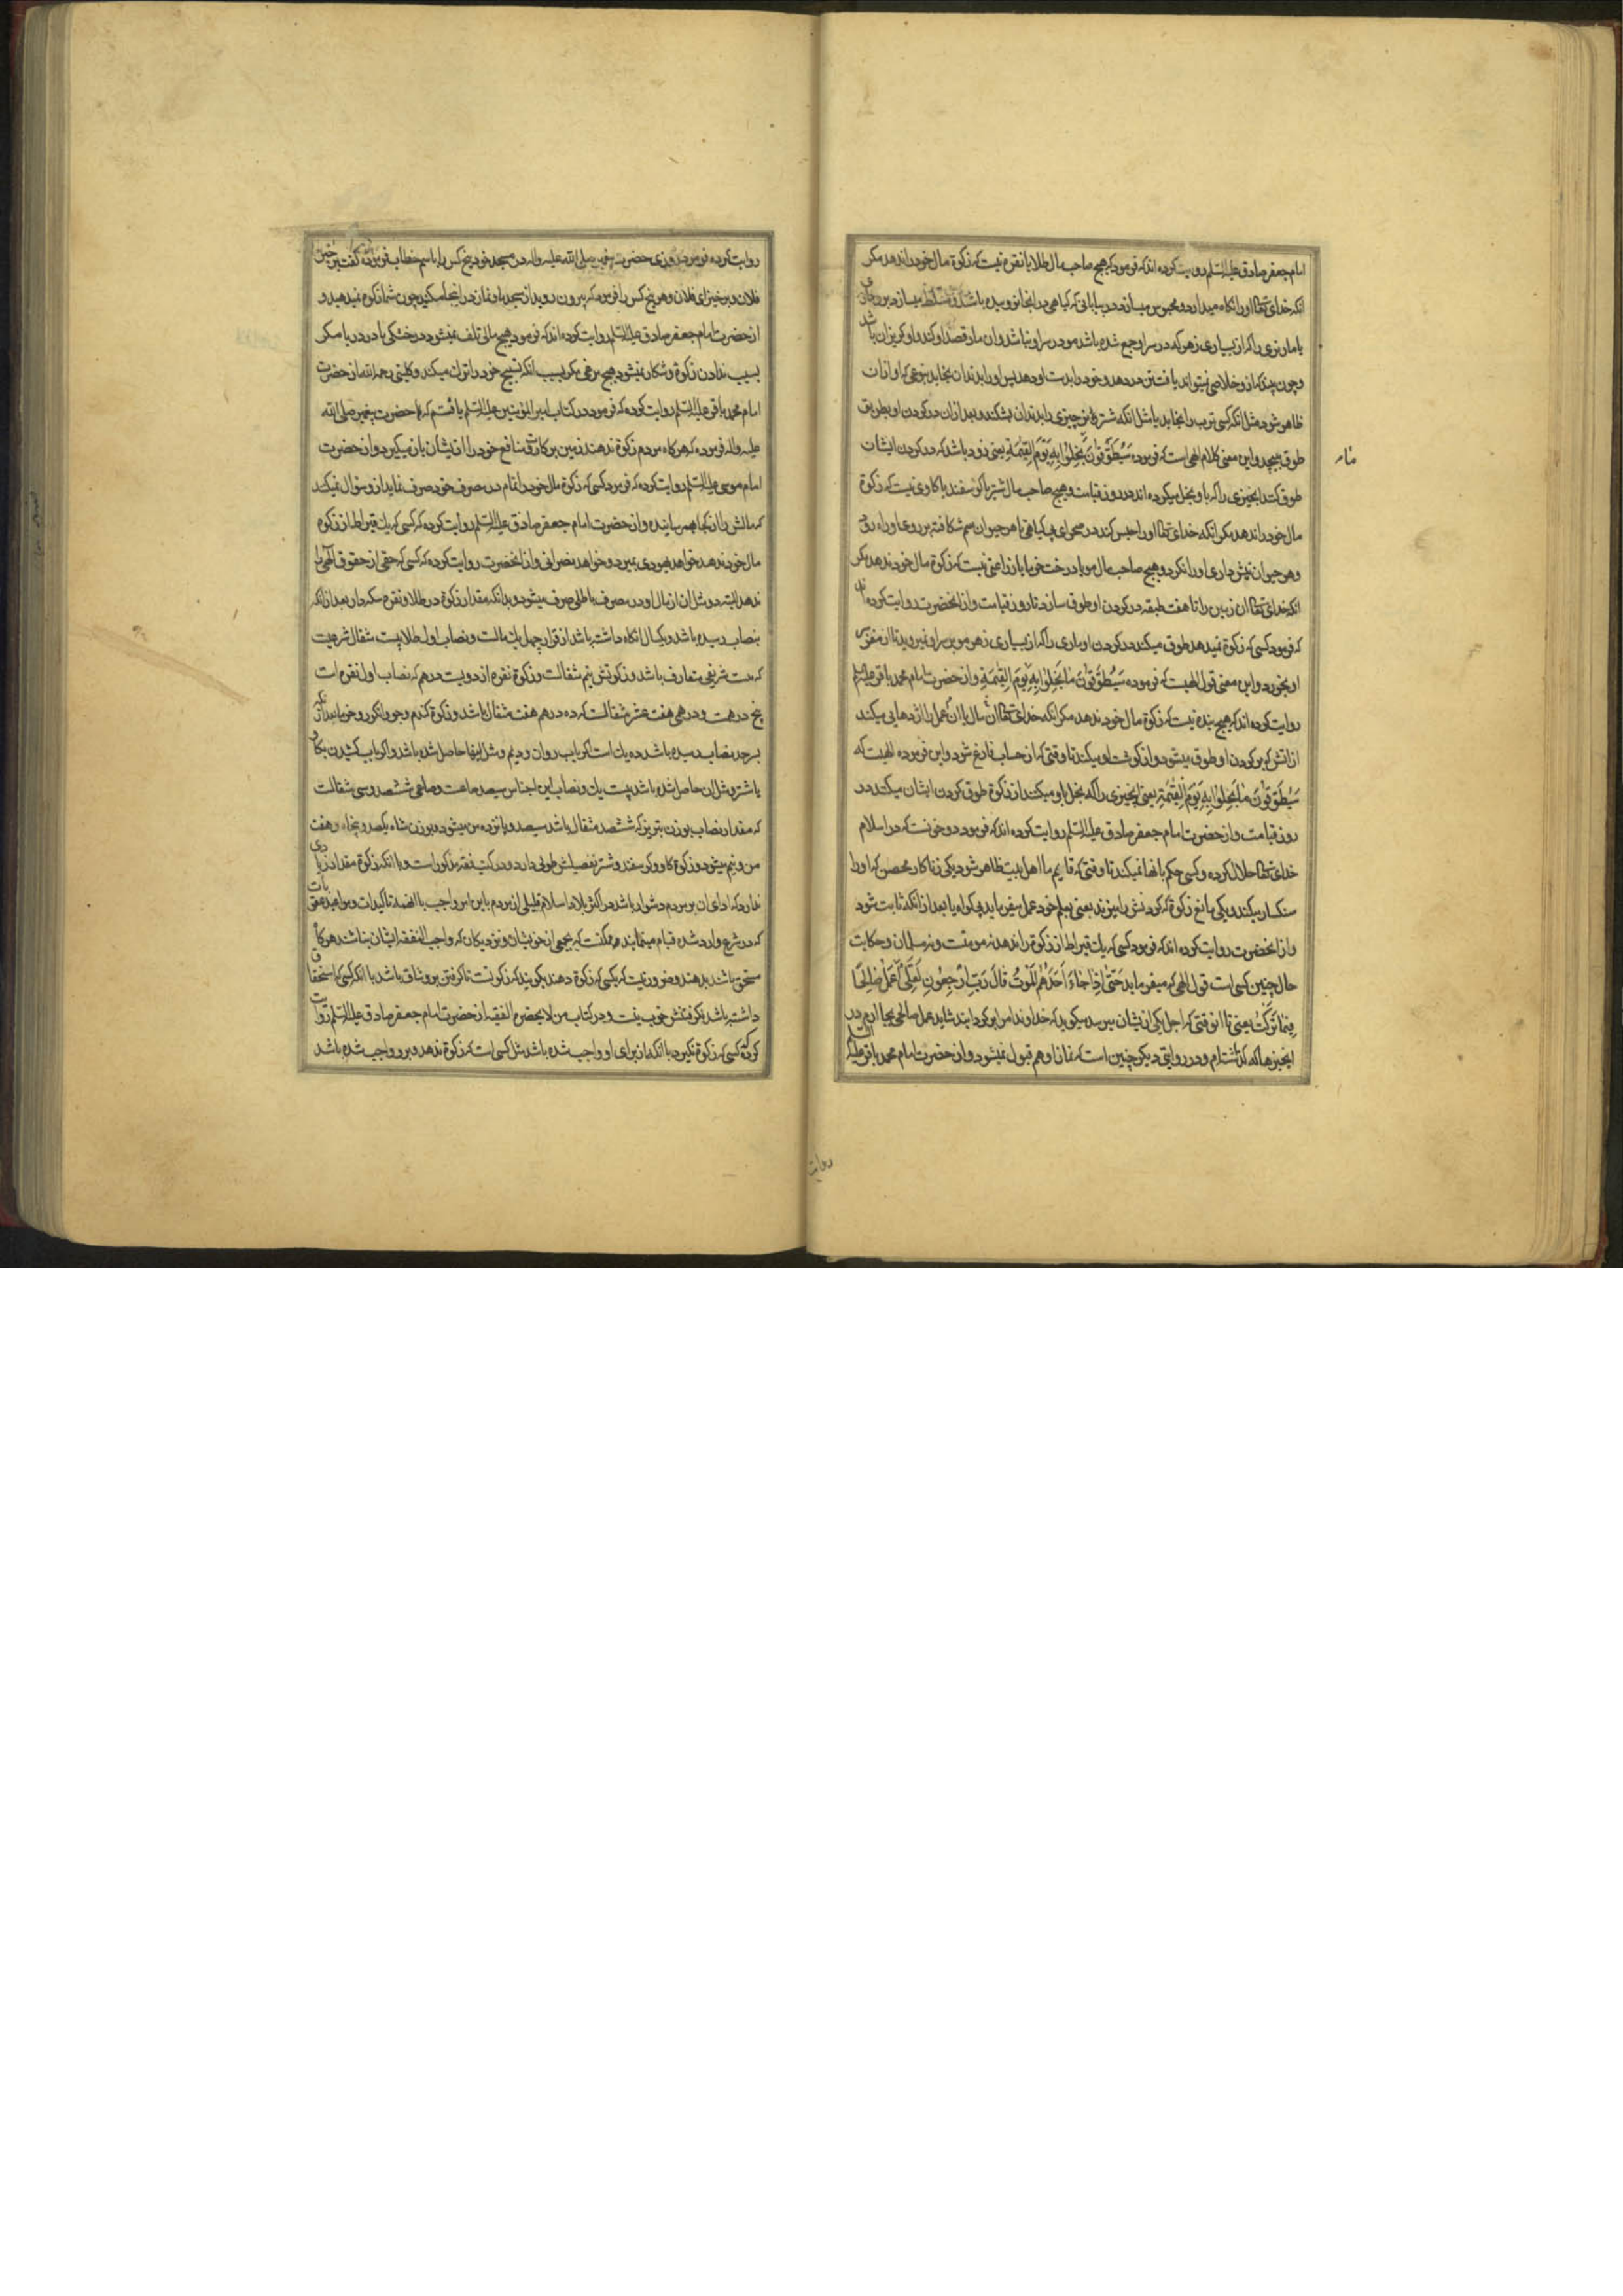 امام جعفر صادق علیه السلم روایت کرده اند که فرمود که هیچ صاحب مال طلا یا نقره نیست که زکوة مال خود را ندهد مکر
انکه خدای تعالی او را نکاه میدارد و محبوس میسازد در بیابانی که کیاهی در انجا نروییده باشد و مسلط میسازد بر او
یا مار نری را که از بسیاری زهر که در سر او جمع شده باشد مو در سر او نباشد وان مار قصد او کند و او کریزان باشد
و چون بیند که از و خلاصی نمیتواند یافت تن در دهد و خود را بدست او دهد پس او را بدندان بخاید بنوعی که اواز ان
ظاهر شود مثل انکه کسی ترب را بخاید یا مثل انکه شتر نر چیزی را بدندان بشکند و بعد از ان در کردن او بطریق
طوق بپیچد و این معنی کلام الهی است که فرموده سَیُطَوَّقُونَ مَا بَخِلُوا بِهِ یَوْمَ الْقِیٰمَةِ یعنی زود باشد که در کردن ایشان
طوق کنند انچیزی را که باو بخل میکرده اند در روز قیامت و هیچ صاحب مال شتر یا کوسفند یا کاوی نیست که زکوة
مال خود را ندهد مکر انکه خدای تعالی او را حبس کند در صحرای بی کیاهی تا هر حیوان سم شکافته بر روی او راه رود
و هر حیوان نیش داری او را نکزد و هیچ صاحب مال مو یا درخت خرما یا زراعتی نیست که زکوة مال خود ندهد مکر
انکه خدای تعالی ان زمین را تا هفت طبقه در کردن او طوق سازد تا روز قیامت و از انحضرت روایت کرده اند
که فرمود کسی که زکوة نمیدهد طوق میکنند در کردن او ماری را که از بسیاری زهر مو بر سر او نمیروید تا از مغز سر
او بخورد و این معنی قول الهیست که فرموده سَیُطَوَّقُونَ مَا بَخِلُوا بِهِ یَوْمَ الْقِیٰمَةِ و از حضرت امام محمد باقر علیه السلم
روایت کرده اند که هیچ بنده نیست که زکوة مال خود ندهد مکر انکه خدای تعالی ان مال یا ان عمل را اژدهایی میکند
از اتش که بر کردن او طوق میشود و از کوشت او میکند تا وقتی که از حساب فارغ شود و این فرموده الهیست که
سَیُطَوَّقُونَ مَا بَخِلُوا بِهِ یَوْمَ الْقِیٰمَةِ یعنی انچیزی را که بخل باو میکنند از زکوة طوق کردن ایشان میکنند در
روز قیامت و از حضرت امام جعفر صادق علیه السلم روایت کرده اند که فرمود دو خونست که در اسلام
خدای تعالی حلال کرده و کسی حکم بانها نمیکند تا وقتی که قایم ما اهل بیت ظاهر شود یکی زنا کار محصن که او را
سنکسار میکند و یکی مانع زکوة که کردنش را میزند یعنی بعلم خود عمل میفرماید بی کواه یا بعد از انکه ثابت شود
و از انحضرت روایت کرده اند که فرمود کسی که یک قیراط از زکوة را ندهد نه مومنست و نه مسلمان و حکایت
حال چنین کسی است قول الهی که میفرماید حَتّٰی اِذَا جَاءَ اَحَدَهُمُ الْمَوْتُ قَالَ رَبِّ ارْجِعُونِ لَعَلِّی اَعْمَلُ صَالِحًا
فِیمَا تَرَکْتُ یعنی تا انوقتی که اجل یکی از ایشان میرسد میکوید که خداوندا مرا بر کردانید شاید عمل صالحی بجا اورم در
انچیزها که کذاشته ام و در روایتی دیکر چنین است که نماز او هم قبول نمیشود و از حضرت امام محمد باقر علیه السلم
روایت
روایت کرده فرمود روزی حضرت پیغمبر صلی الله علیه واله در مسجد خود پنج کس را باسم خطاب فرموده کفت برخیز ای
فلان و برخیز ای فلان و هر پنج کس را فرمود که بیرون روید از مسجد ما و نماز در اینجا مکنید چون شما زکوة نمیدهید و
از حضرت امام جعفر صادق علیه السلم روایت کرده اند که فرمود هیچ مالی تلف نمیشود در خشکی یا در دریا مکر
بسبب ندادن زکوة و شکار نمیشود هیچ مرغی مکر بسبب انکه تسبیح خود را ترک میکند و کلینی رحمه الله از حضرت
امام محمد باقر علیه السلم روایت کرده که فرمود در کتاب امیر المؤمنین علیه السلم یافتم که حضرت پیغمبر صلی الله
علیه واله فرموده که هر کاه مردم زکوة ندهند زمین برکات و منافع خود را از ایشان باز میکیرد و از حضرت
امام موسی علیه السلم روایت کرده که فرمود کسی که زکوة مال خود را تمام در مصرف خود صرف نماید از و سؤال نمیکنند
که مالش را از کجا بهم رسانیده و از حضرت امام جعفر صادق علیه السلم روایت کرده که کسی که یک قیراط از زکوة
مال خود ندهد خواهد یهودی بمیرد و خواهد نصرانی و از انحضرت روایت کرده که کسی که حقی از حقوق الهی را
ندهد البته دو مثل ان از مال او در مصرف باطلی صرف میشود و بدانکه مقدار زکوة در طلا و نقره سکه دار بعد از انکه
بنصاب رسیده باشد و یکسال نکاه داشته باشد از قرار چهل یک مالست و نصاب اول طلا بیست مثقال شرعیست
که بیست شرفی متعارف باشد و زکوتش نیم مثقالست و زکوة نقره از دویست درهم که نصاب اول نقره است
پنج درهمست و درهمی هفت عشر مثقالست که ده درهم هفت مثقال باشد و زکوة کندم و جو و انکور و خرما بعد از انکه
بر حد نصاب رسیده باشد ده یک است اکر باب روان و دیم و مثل اینها حاصل شده باشد و اکر باب کشیدن بکاو
یا شتر و مثل ان حاصل شده باشد بیست یک و نصاب این اجناس سیصد صاعست و صاعی ششصد و سی مثقالست
که مقدار نصاب بوزن تبریز که ششصد مثقال باشد سیصد و پانزده من میشود و بوزن شاه یکصد و پنجاه و هفت
من و نیم میشود و زکوة کاو و کوسفند و شتر تفصیلش طولی دارد و در کتب فقه مذکور است و با انکه زکوة مقدار زیادی
ندارد که ادای ان بر مردم دشوار باشد در اکثر بلاد اسلام قلیلی از مردم باین امر واجب با انهمه تاکیدات و مواعید عقوبات
که در شرع وارد شده قیام مینمایند و ممکنست که بجمعی از خویشان و نزدیکان که واجب النفقه ایشان نباشند هر کاه
مستحق باشند بدهند و ضرور نیست که بکسی که زکوة دهند بکویند که زکوتست تا کرفتن برو شاق باشد با انکه کسی که استحقاق
داشته باشد نکرفتنش خوب نیست و در کتاب من لا یحضره الفقیه از حضرت امام جعفر صادق علیه السلم روایت
کرده که کسی که زکوة نکیرد با انکه از برای او واجب شده باشد مثل کسی است که زکوة ندهد و برو واجب شده باشد